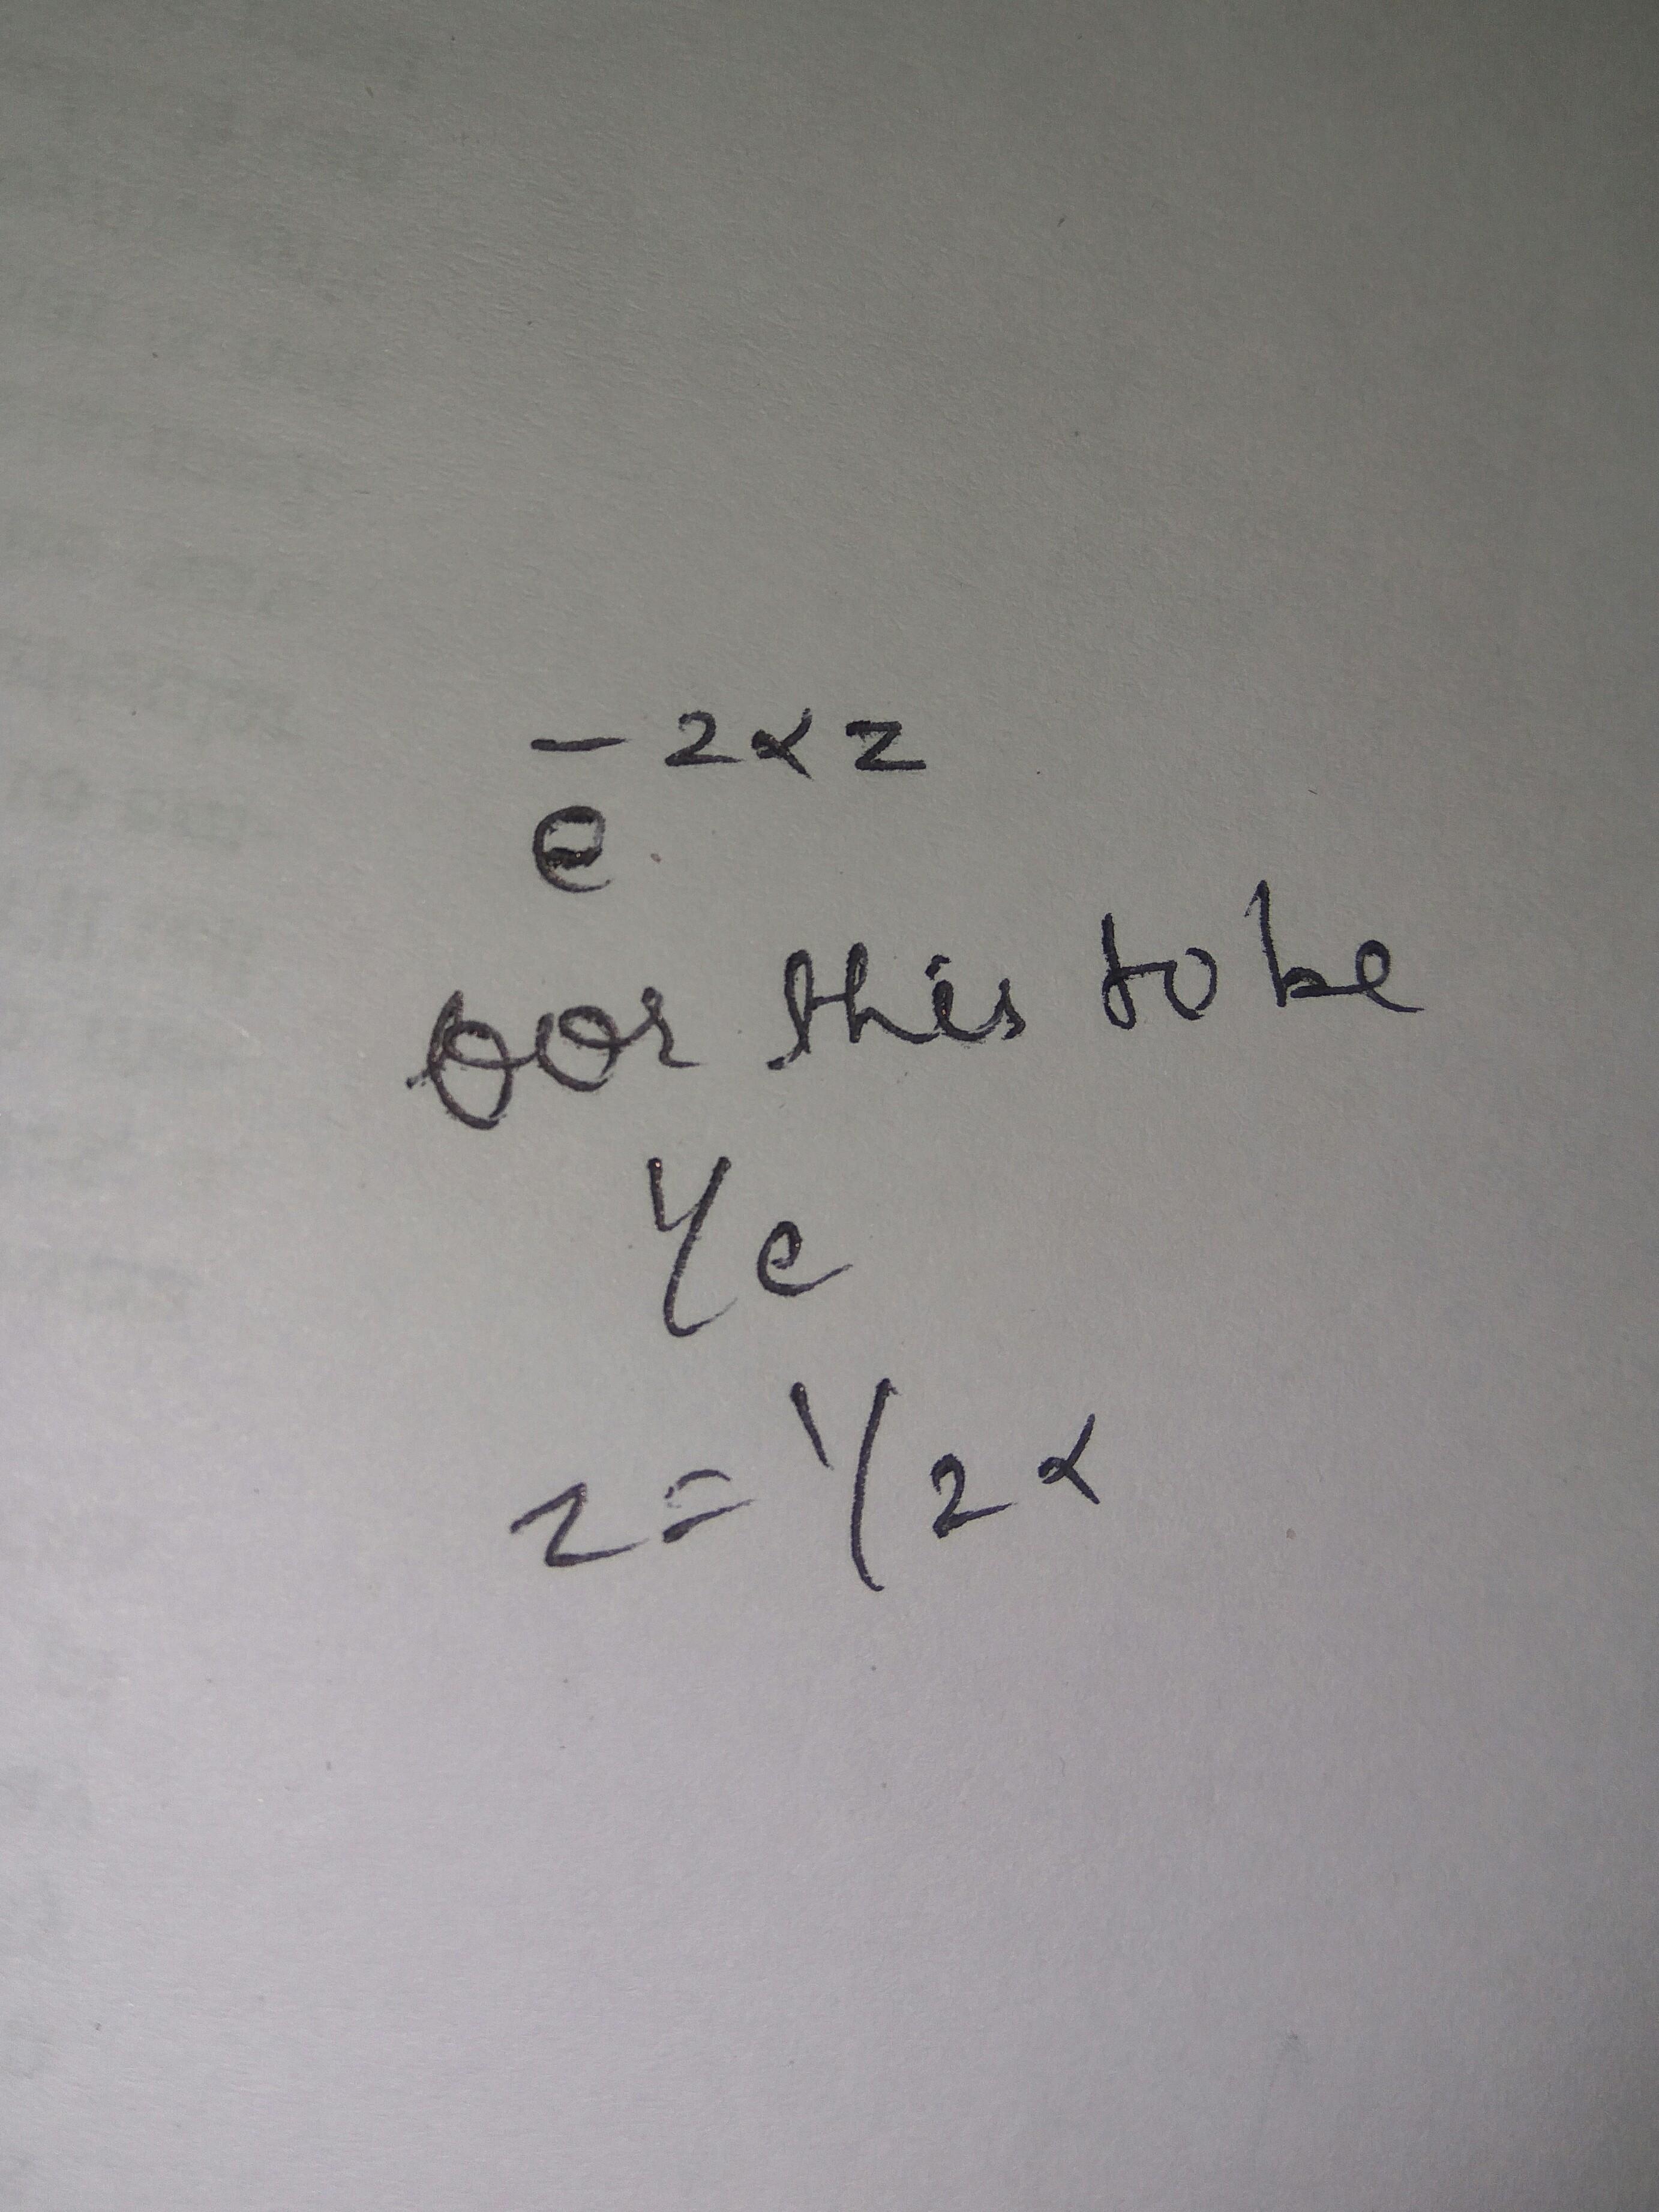 e^{-2αz}
for this to be
1/e
z = 1/2α